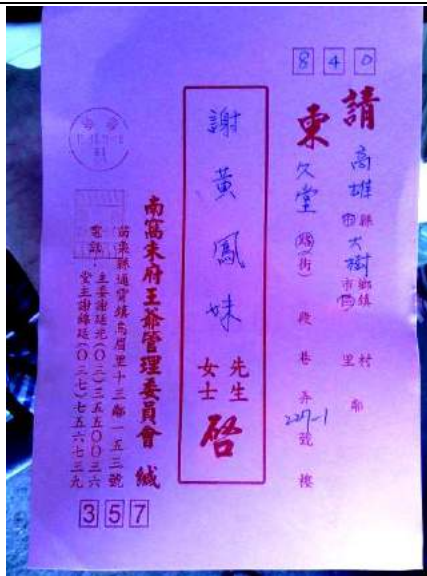 840
請柬
高雄市縣大樹市鄉鎮區村里鄰
久堂路(街)段巷弄227-1號樓
謝黃鳳妹
先生
女士
啓
南窩朱府王爺管理委員會 緘
苗栗縣通霄鎮烏眉里十三鄰一五三號
電話：主委謝延光(〇三)三五五〇〇三六
堂主謝錦延(〇三七)七五六七三九
357